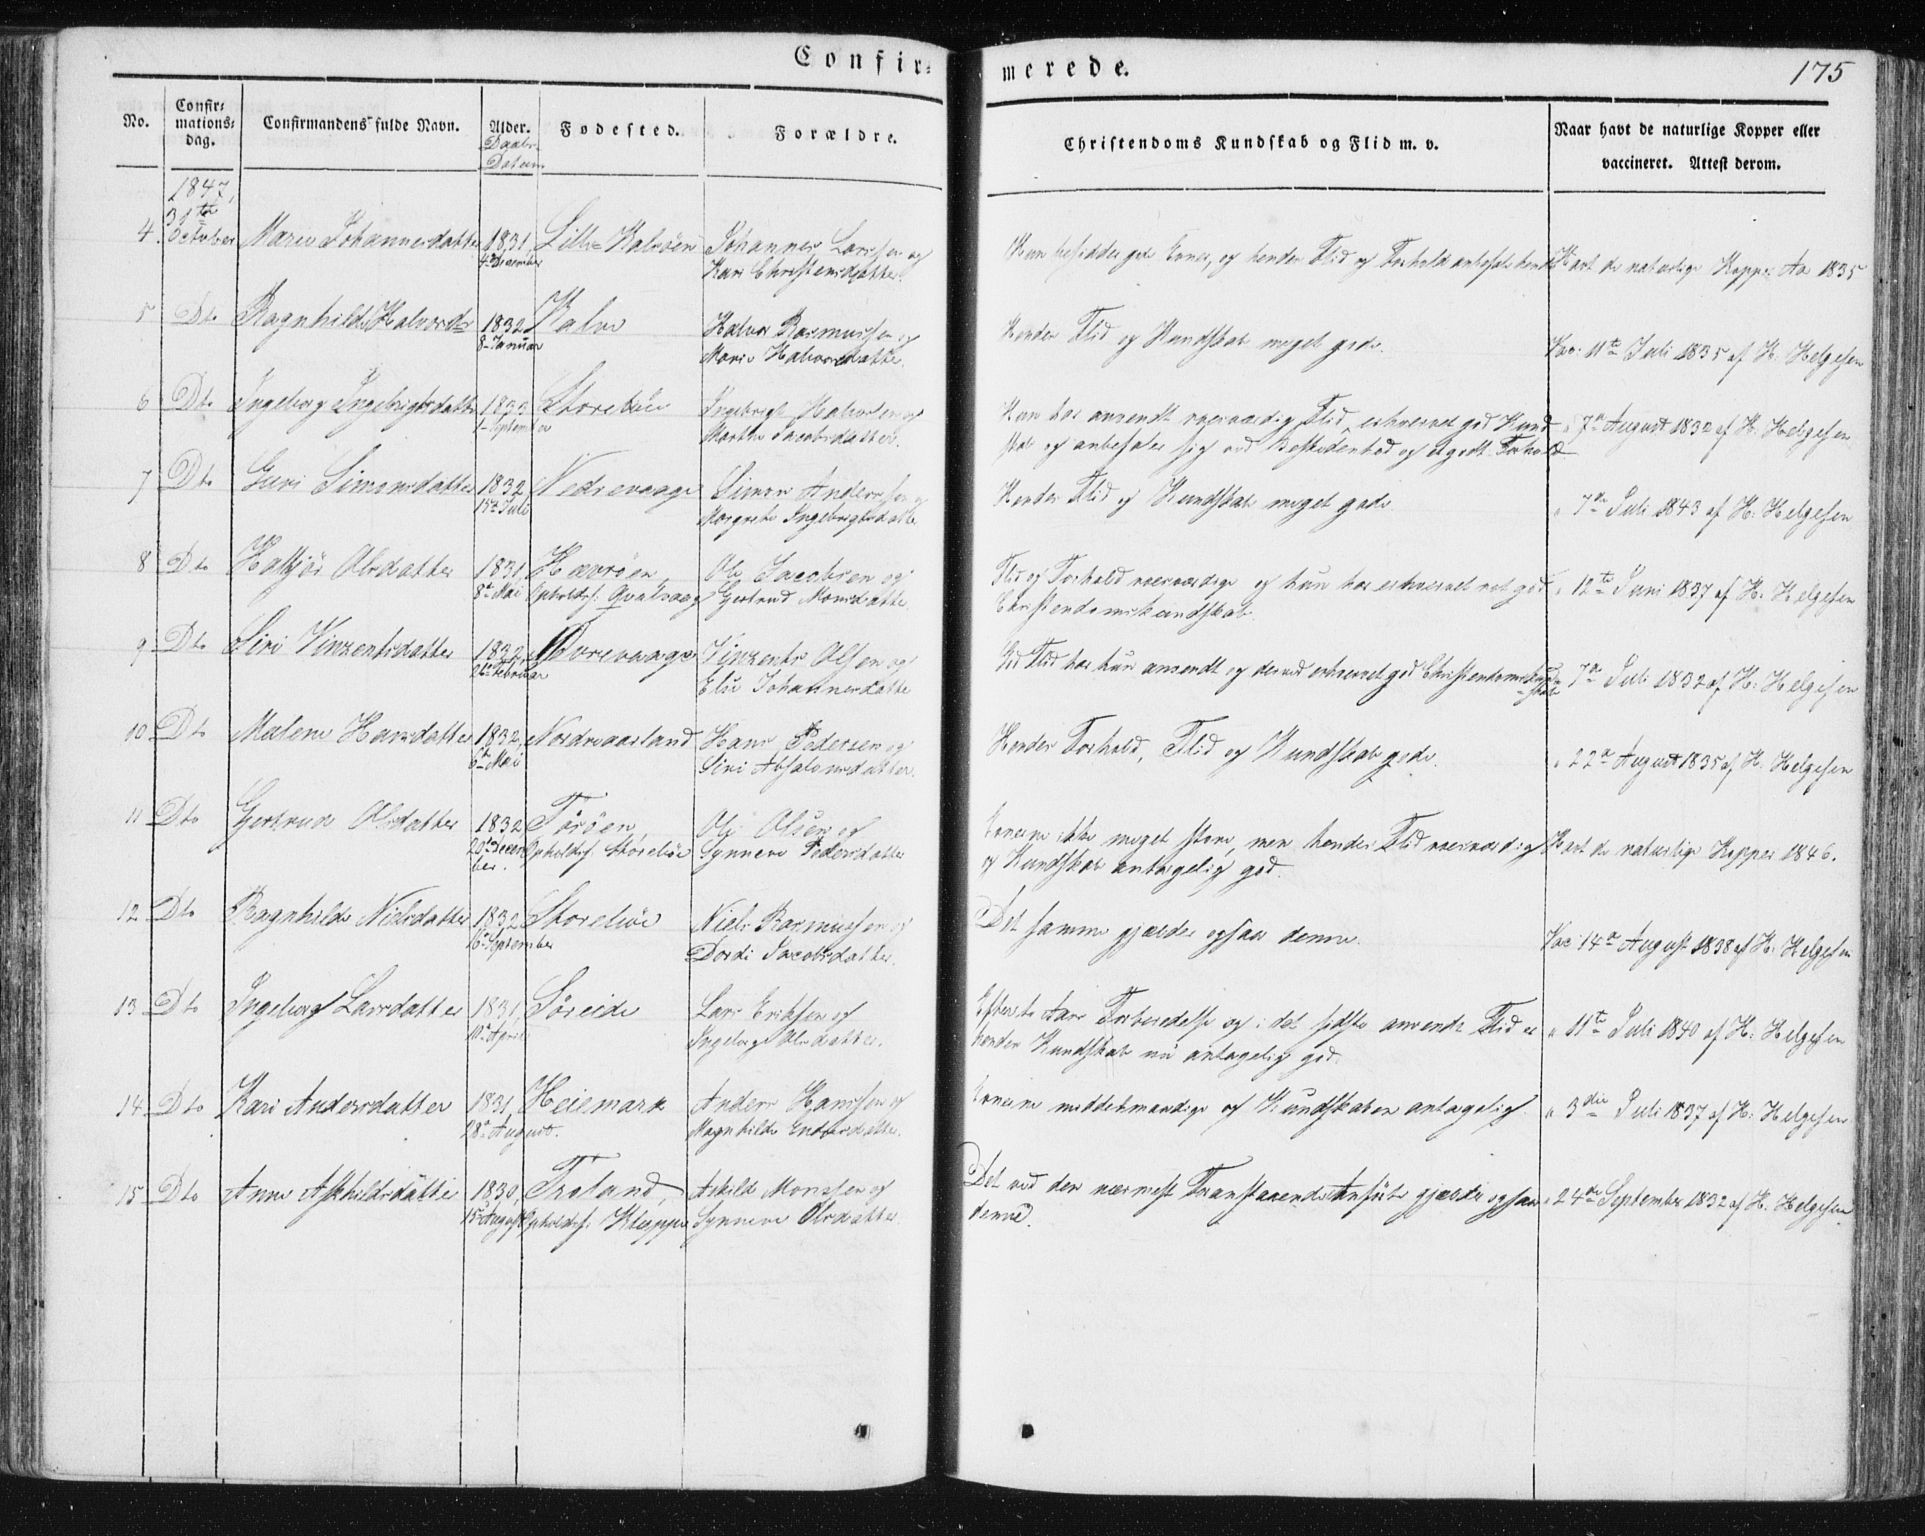 Confir=
merede.
175
No.
Confir=
mations=
dag.
Confirmandens fulde Navn.
Alder.
Daabs
Datum
Fødested.
Forældre.
Christendoms Kundskab og Flid m. v.
Naar havt de naturlige Kopper eller
vaccineret. Attest derom.
1847,
31te
4. October Mari Johannesdatter 1831 Lille Kalvøen Johannes Larssen og
4de December Kari Christensdatter.
Hun besidder gode Evner, og hendes Flid og Forhold anbefale hende Havt de naturlige Kopper Ao 1835
5 Dto Ragnhilde Halvordr 1832 Kalve Halvor Rasmussen og
8 Januar Mari Halvorsdatter.
Hendes Flid og Kundskab meget gode. Vac: 11te Juli 1835 af H. Helgesen
6 Dto Ingeborg Ingebrigtsdatter 1833 Storebøe Ingebrigt Halvorsen og
1 September Marthe Jacobsdatter.
Hun har anvendt roesværdig Flid, erhvervet god Kund " 7de August 1832 af H. Helgesen
skab og anbefaler sig ved Beskedenhed og et godt Forhold
7 Dto Guri Simonsdatter 1832 Nedrevaage Simon Anderssen og
15de Juli Margrete Ingebrigtsdatter
Hendes Flid og Kundskab meget gode " 7de Juli 1843 af H. Helgesen
8 Dto Olsdatter 1831 Havrøen, Ole Jacobsen og
8de Mai Opholdss: Gertrud Monsdatter
Flid og Forhold roesværdige og hun har erhvervet ret god " 12te Juni 1837 af H. Helgesen
Christendomskundskab.
9 Dto Siri Vinzentsdatter 1832 Øvrevaage Vinzents Olsen og
26de Februar Eli Johannesdatter
God Flid har hun anvendt og derved erhvervet god Christendomskund= " 7de Juli 1832 af H. Helgesen
=skab
10 Dto Malene Hansdatter 1832 Nordrevaarland Hans Pedersen og
6te Mai Siri Absalonsdatter.
Hendes Forhold, Flid og Kundskab gode. " 22de August 1835 af H. Helgesen
11 Dto Gertrud Olsdatter 1832 Torøen, Ole Olsen og
20de Decem Opholdss: Storebøe Synneve Pedersdatter
ber.
Evnerne ikke meget store, men hendes Flid roesværdig Havt de naturlige Kopper 1846.
og Kundskab antagelig god.
12 Dto Ragnhilde Nielsdatter 1832 Storebøe Niels Rasmussen og
16de September Dordi Jacobsdatter.
Det samme gjælder ogsaa denne. Vac: 14de August 1838 af H. Helgesen
13 Dto Ingeborg Larsdatter 1831 Søreide Lars Eriksen og
10de April Ingeborg Olsdatter.
Efter to Aars Forberedelse og i det sidste anvendt Flid er " 11te Juli 1840 af H. Helgesen
hendes Kundskab nu antagelig god.
14 Dto Kari Andersdatter 1831 Heiemark Anders Hanssen og
28de August. Magnhilde
Evnerne middelmaadige og Kundskaben antagelig " 3die Juli 1837 af H. Helgesen
15 Dto Anne Askhildsdatter 1830 Troland, Askild Monssen og
15 August Opholdss: Kleppe Synneve Olsdatter.
Det ved den nærmest Franstaaende Anførte gjælder ogsaa " 24de September 1832 af H. Helgesen
denne.